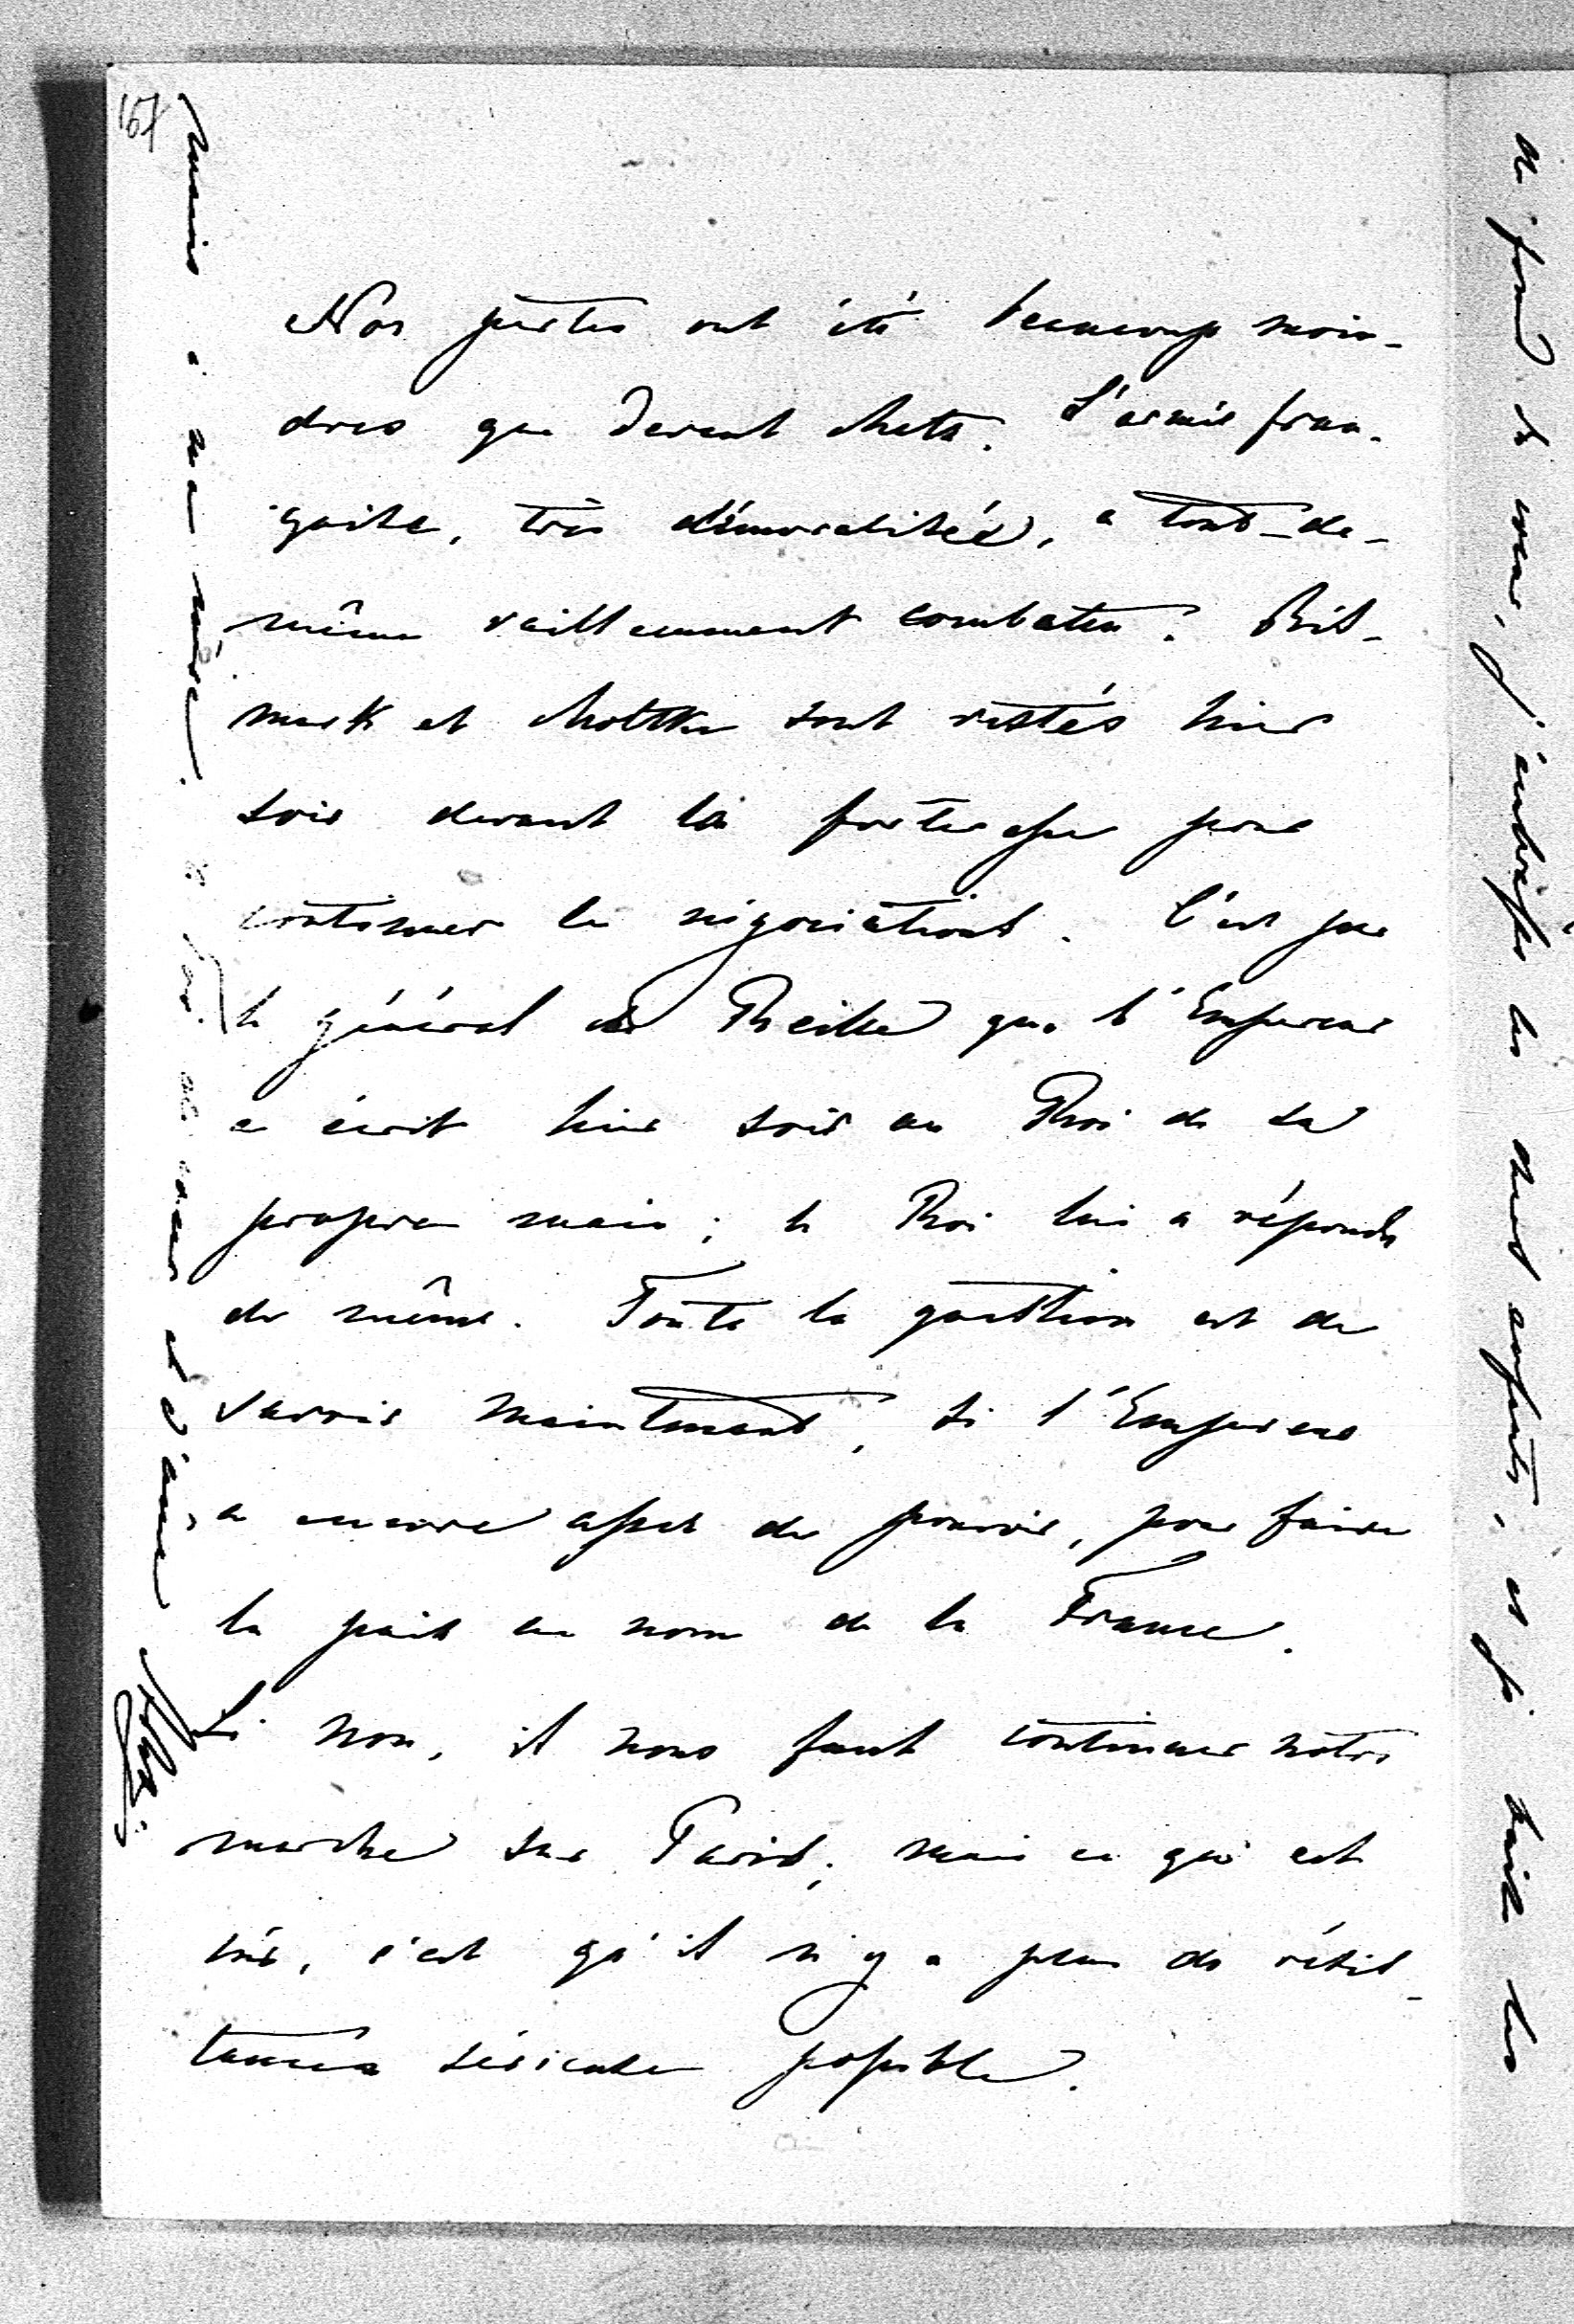 167
Nos pertes ont été beaucoup moin-
dres que devant Metz. L'armée fran-
çaise, très démoralisée, a tout-de-
même vaillamment combattu. Bis-
mark et Moltke sont restés hier
soir devant la forteresse pour
continuer les négociations. C'est par
le général de Reille que l'Empereur
a écrit hier soir au Roi de sa
propre main; le Roi lui a répondu
de même. Toute la question est de
savoir maintenant, si l'Empereur
a encore assez de pouvoir, pour faire
la paix au nom de la France.
Si non, il nous faut continuer notre
marche sur Paris; mais ce qui est
sûr, c'est qu'il n'y a plus de résis-
tance sérieuse possible.
du fond de cœur, j'embrasse les chers enfants, et je baise les
mains à ma mère. à toi de cœur et d'âme